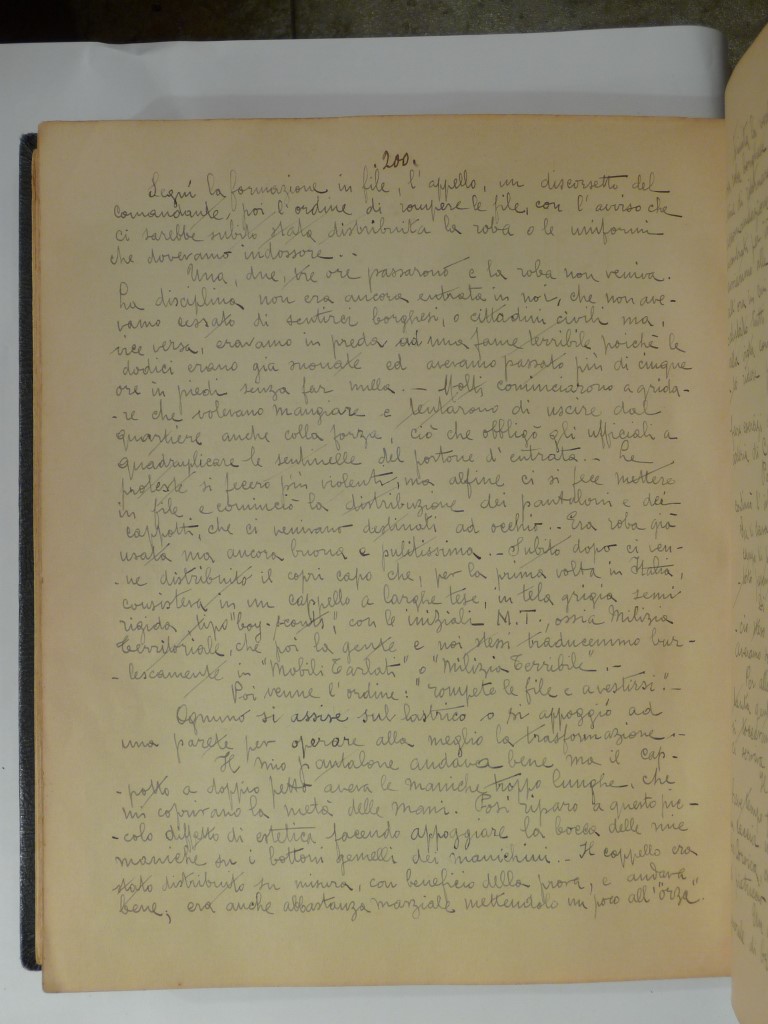 . 200.
Seguí la formazione in file, l'appello, un discorsetto del
comandante, poi l'ordine di rompere le file, con l'avviso che
ci sarebbe subito stata distribuita la roba o le uniformi
che dovevamo indossare..
Una, due, tre ore passarono e la roba non veniva.
La disciplina non era ancora entrata in noi, che non ave-
vamo cessato di sentirci borghesi, o cittadini civili ma,
vice versa, eravamo in preda ad una fame terribile poichè le
dodici erano già suonate ed avevamo passato più di cinque
ore in piedi senza far nulla. – Molti cominciarono a grida-
-re che volevano mangiare e tentarono di uscire dal
quartiere anche colla forza, ciò che obbligò gli ufficiali a
quadruplicare le sentinelle del portone d'entrata. – Le
proteste si fecero più violenti, ma alfine ci si fece mettere
in file e cominciò la distribuzione dei pantaloni e dei
cappotti, che ci venivano destinati ad occhio.. Era roba già
usata ma ancora buona e pulitissima. – Subito dopo ci ven-
-ne distribuito il copri capo che, per la prima volta in Italia,
consisteva in un cappello a larghe tese, in tela grigia semi
rigida tipo "boy-scouts", con le iniziali M.T., ossia Milizia
Territoriale, che poi la gente e noi stessi traducemmo bur-
-lescamente in "Mobili Tarlati" o "Milizia Terribile". –
Poi venne l'ordine: "rompete le file e a vestirsi". –
Ognuno si assise sul lastrico o si appoggiò ad
una parete per operare alla meglio la trasformazione. –
Il mio pantalone andava bene ma il cap-
-potto a doppio petto aveva le maniche troppo lunghe, che
mi coprivano la metà delle mani. Posi riparo a questo pic-
-colo difetto di estetica facendo appoggiare la bocca delle mie
maniche su i bottoni gemelli dei manichini. – Il cappello era
stato distribuito su misura, con beneficio della prova, e andava
bene; era anche abbastanza marziale mettendolo un poco all'"orza".